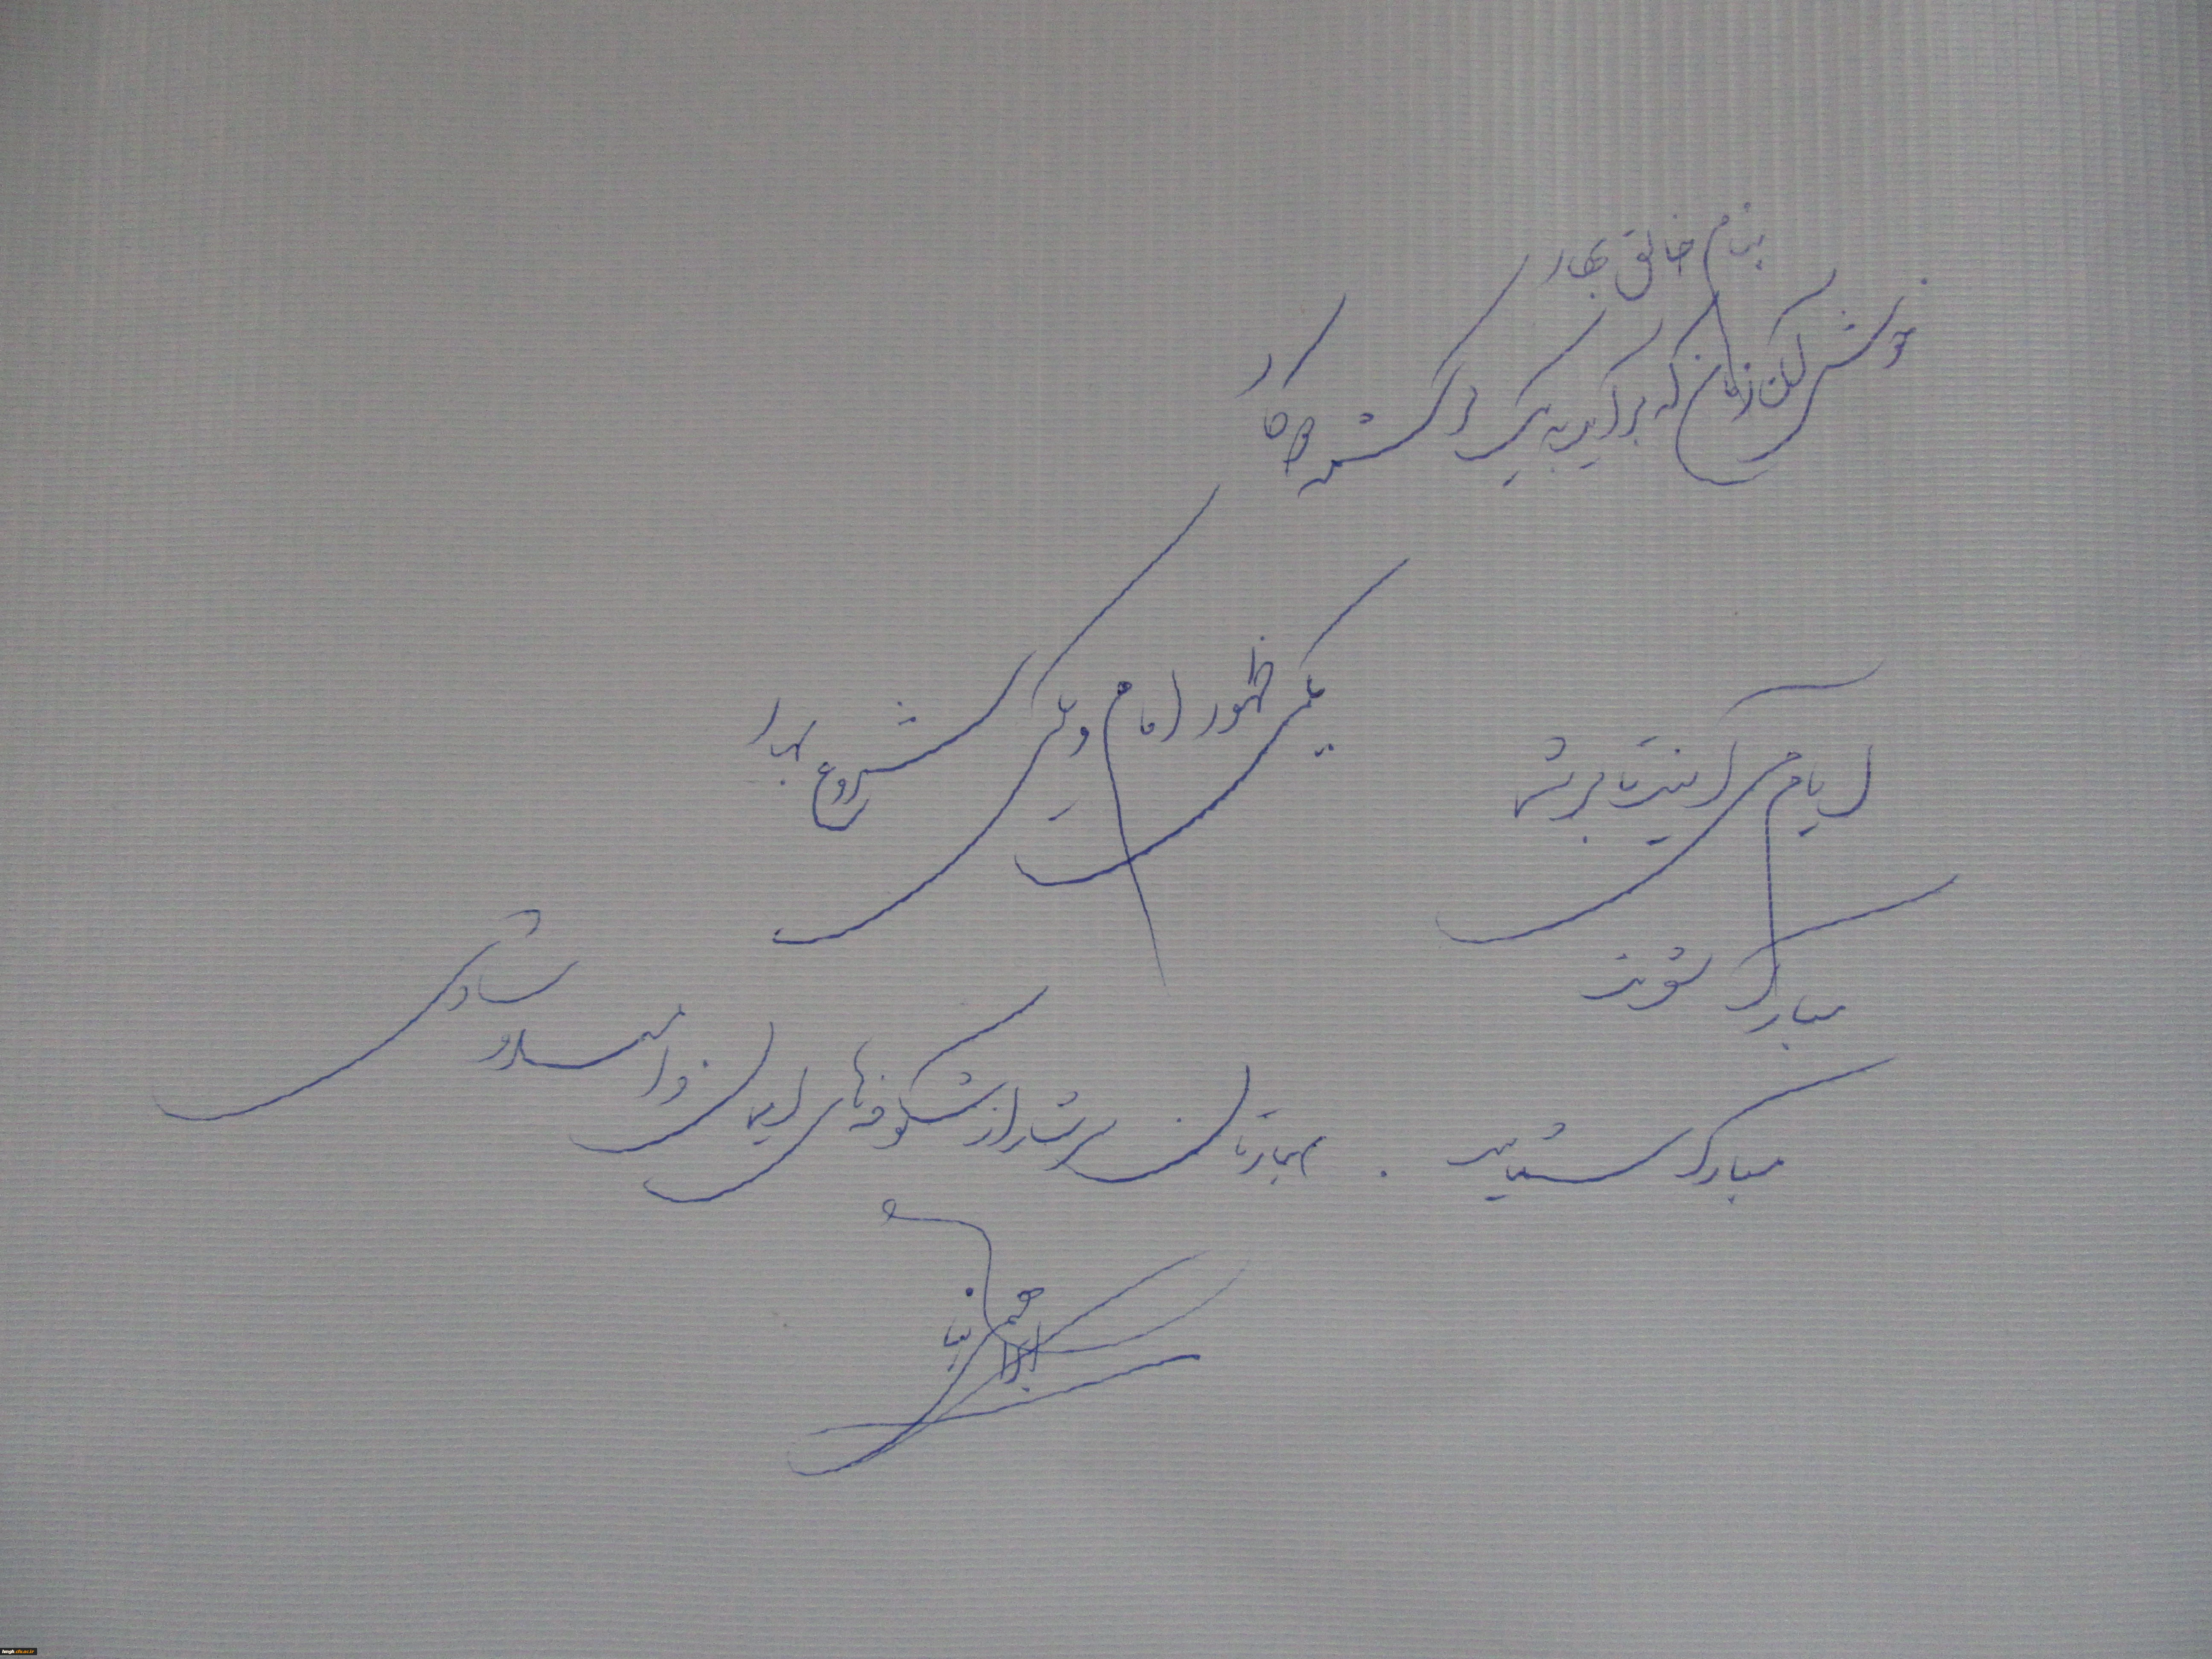 بنام خالق بهار
خوش آن زمان که برآید به یک کرشمه دو کار
یکی ظهور امام و یکی شروع بهار
ایام می آیند تا بر شما
مبارک شوند
مبارک شمایید . بهارتان سرشار از شکوفه‌های ایمان و امید و
شادی
ابراهیم نیا